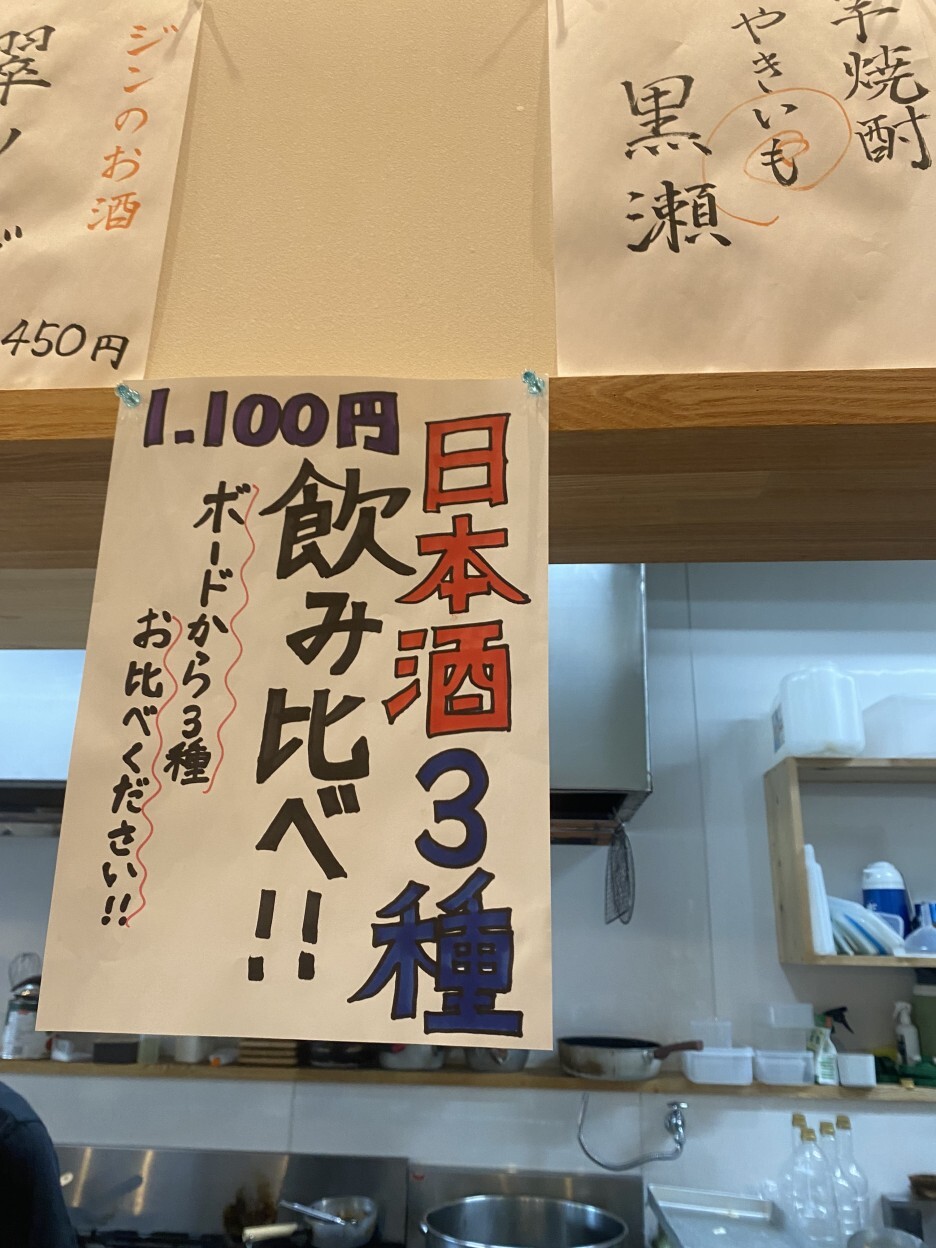 芋焼酎
やきいも
黒瀬
ジンのお酒
翠ジン
450円
日本酒3種
飲み比べ!!
1.100円
ボードから3種
お比べください!!